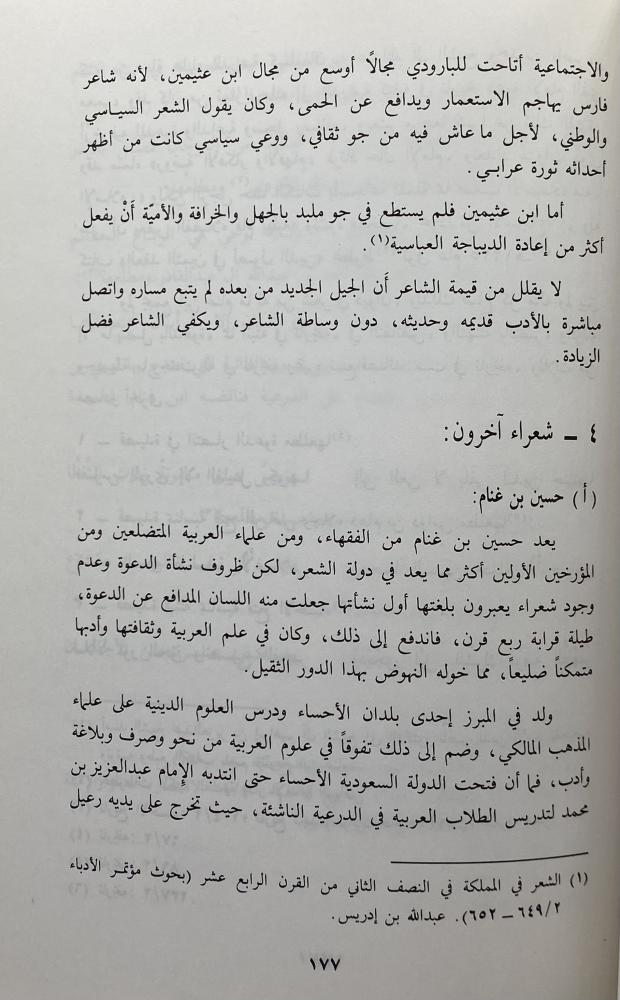 والاجتماعية أتاحت للبارودي مجالًا أوسع من مجال ابن عثيمين، لأنه شاعر
فارس يهاجم الاستعمار ويدافع عن الحمى، وكان يقول الشعر السياسي
والوطني، لأجل ما عاش فيه من جو ثقافي، ووعي سياسي كانت من أظهر
أحداثه ثورة عرابي.
أما ابن عثيمين فلم يستطع في جو ملبد بالجهل والخرافة والأميّة أَنْ يفعل
أكثر من إعادة الديباجة العباسية(١).
لا يقلل من قيمة الشاعر أَن الجيل الجديد من بعده لم يتبع مساره واتصل
مباشرة بالأدب قديمه وحديثه، دون وساطة الشاعر، ويكفي الشاعر فضل
الزيادة.
٤ – شعراء آخرون:
(أ) حسين بن غنام:
يعد حسين بن غنام من الفقهاء، ومن علماء العربية المتضلعين ومن
المؤرخين الأولين أكثر مما يعد في دولة الشعر، لكن ظروف نشأة الدعوة وعدم
وجود شعراء يعبرون بلغتها أول نشأتها جعلت منه اللسان المدافع عن الدعوة،
طيلة قرابة ربع قرن، فاندفع إلى ذلك، وكان في علم العربية وثقافتها وأدبها
متمكناً ضليعاً، مما خوله النهوض بهذا الدور الثقيل.
ولد في المبرز إحدى بلدان الأحساء ودرس العلوم الدينية على علماء
المذهب المالكي، وضم إلى ذلك تفوقاً في علوم العربية من نحو وصرف وبلاغة
وأدب، فما أن فتحت الدولة السعودية الأحساء حتى انتدبه الإمام عبدالعزيز بن
محمد لتدريس الطلاب العربية في الدرعية الناشئة، حيث تخرج على يديه رعيل
(١) الشعر في المملكة في النصف الثاني من القرن الرابع عشر (بحوث مؤتمر الأدباء
٦٤٩/٢ – ٦٥٢). عبدالله بن إدريس.
١٧٧